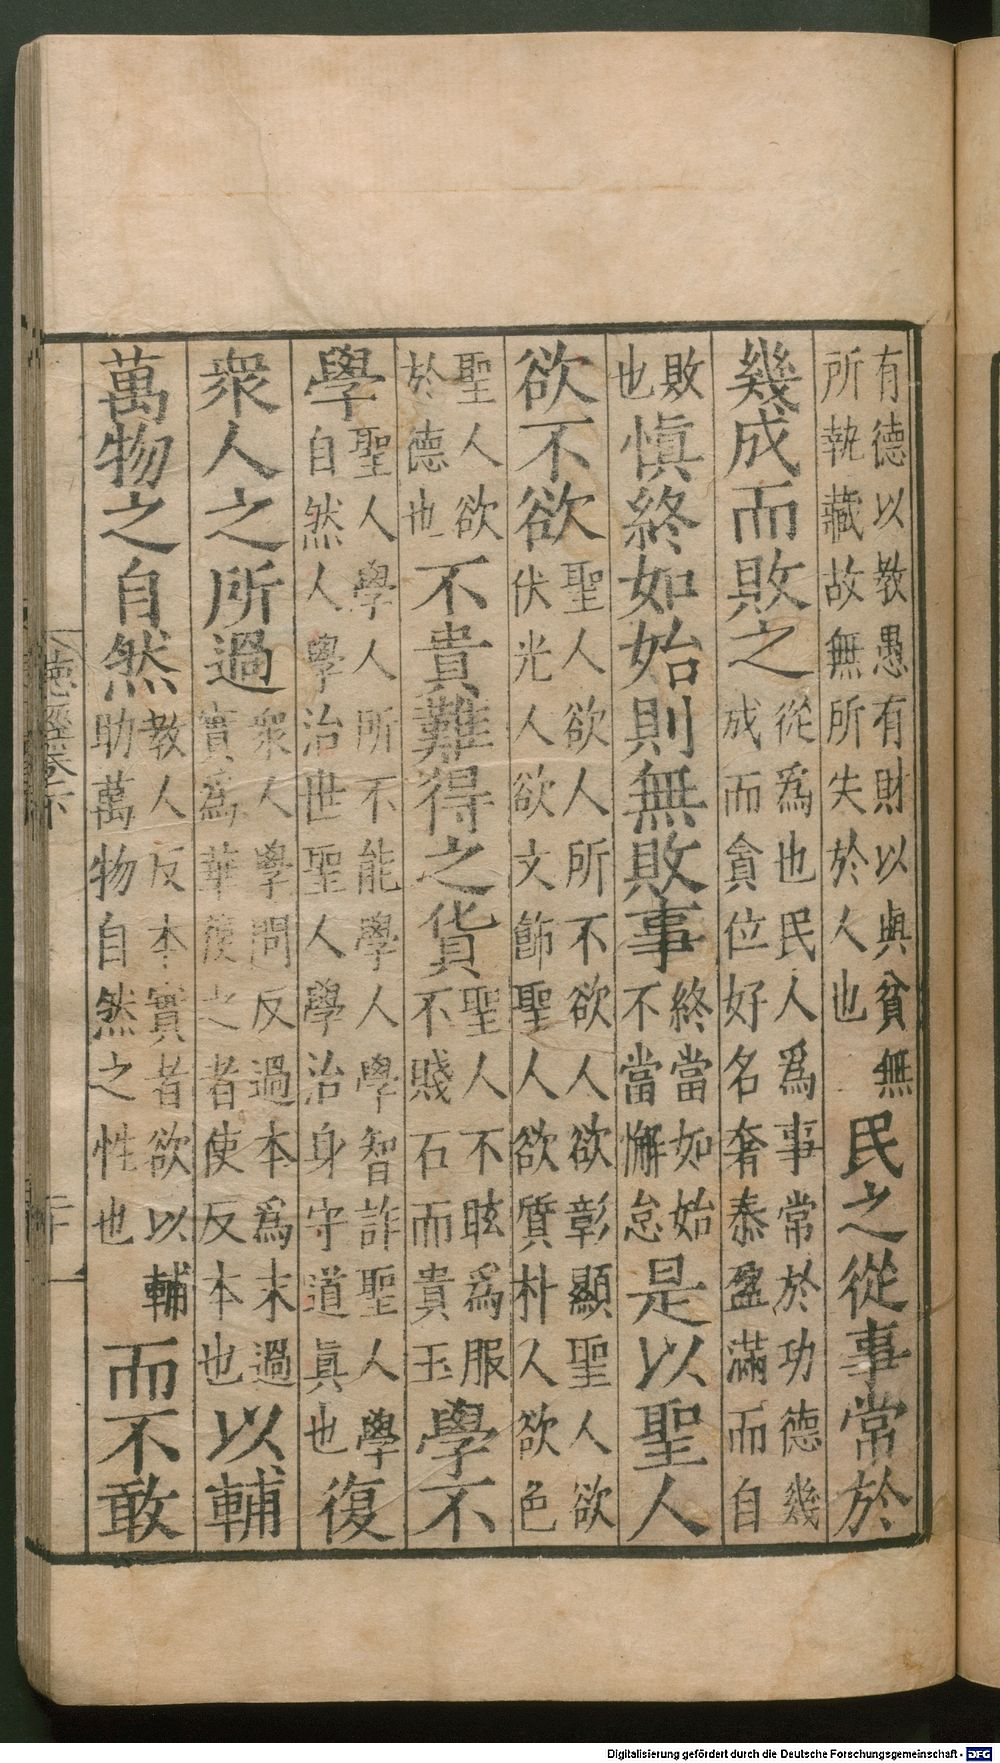 有德以教愚有財以與貧無
所執藏故無所失於人也
民之從事常於
幾成而敗之
從爲也民人爲事常於功德幾
成而貪位好名奢泰盈滿而自
敗
也
愼終如始則無敗事
終當如始
不當懈怠
是以聖人
欲不欲
聖人欲人所不欲人欲彰顯聖人欲
伏光人欲文飾聖人欲質朴人欲色
聖人欲
於德也
不貴難得之貨
聖人不眩爲服
不賤石而貴玉
學不
學
聖人學人所不能學人學智詐聖人學
自然人學治世聖人學治身守道眞也
復
衆人之所過
衆人學問反過本爲末過
實爲華復之者使反本也
以輔
萬物之自然
教人反本實者欲以輔
助萬物自然之性也
而不敢
德經卷下
二十一
Digitalisierung gefördert durch die Deutsche Forschungsgemeinschaft - DFG